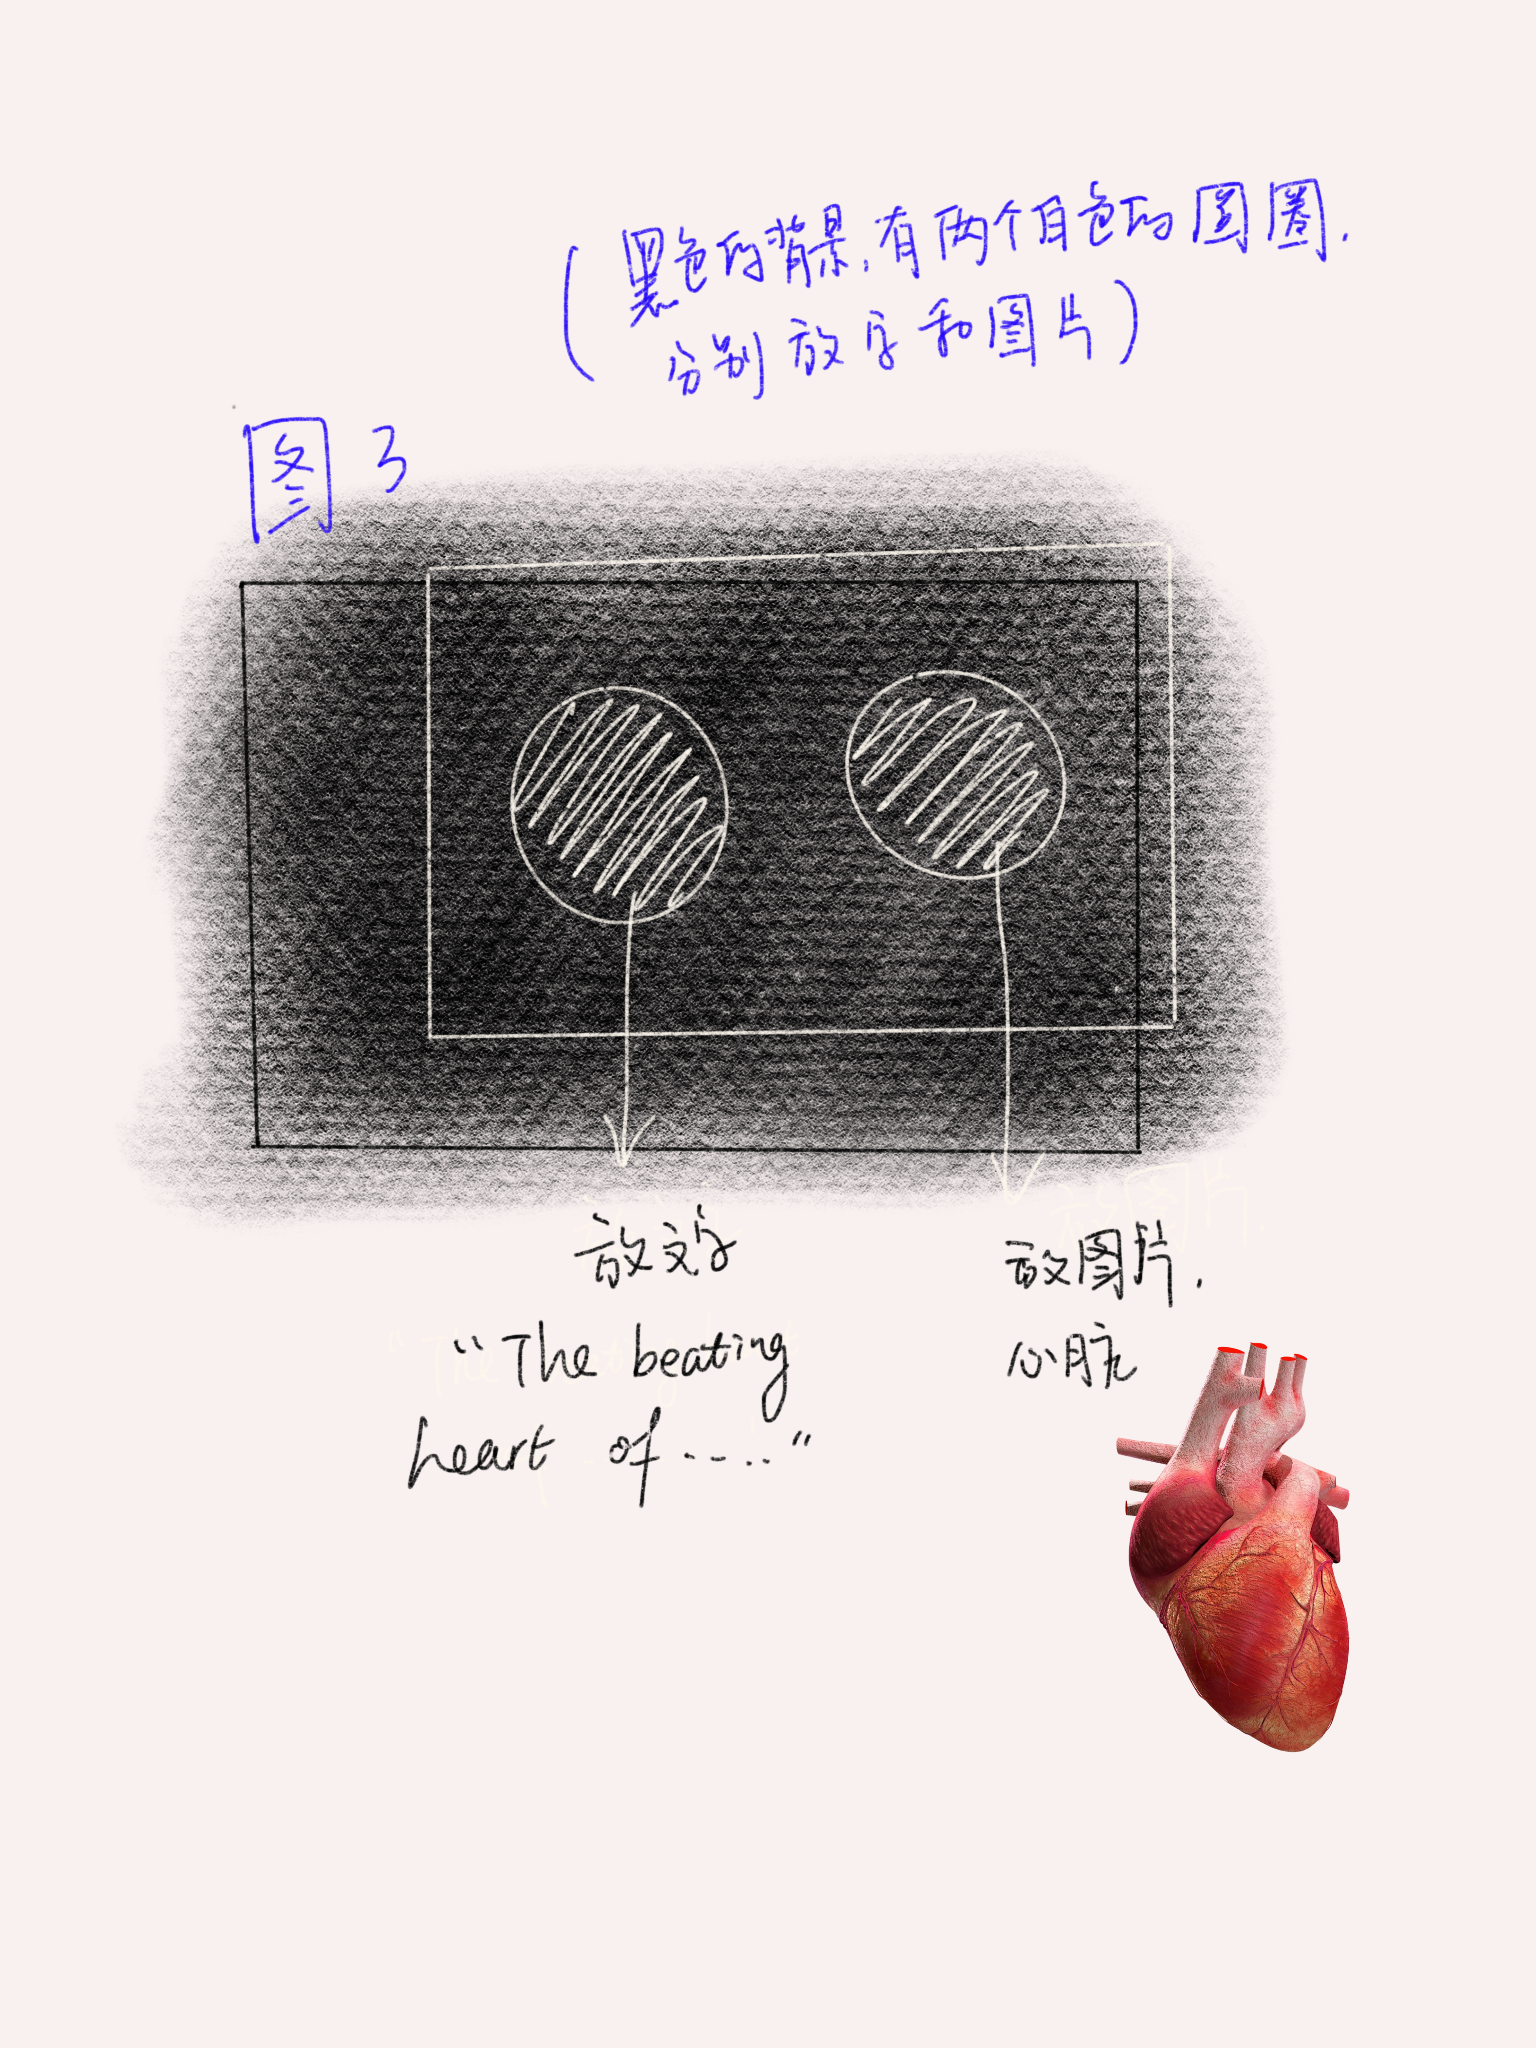 (黑色的背景,有两个白色的圆圈.
分别放字和图片)
图3
放文字
"The beating
heart of ....."
放图片.
心脏